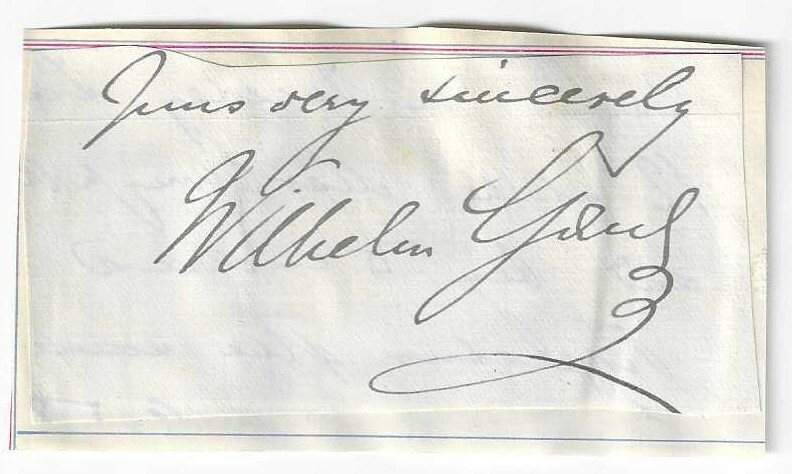 Yours very sincerely
Wilhelm Ganz